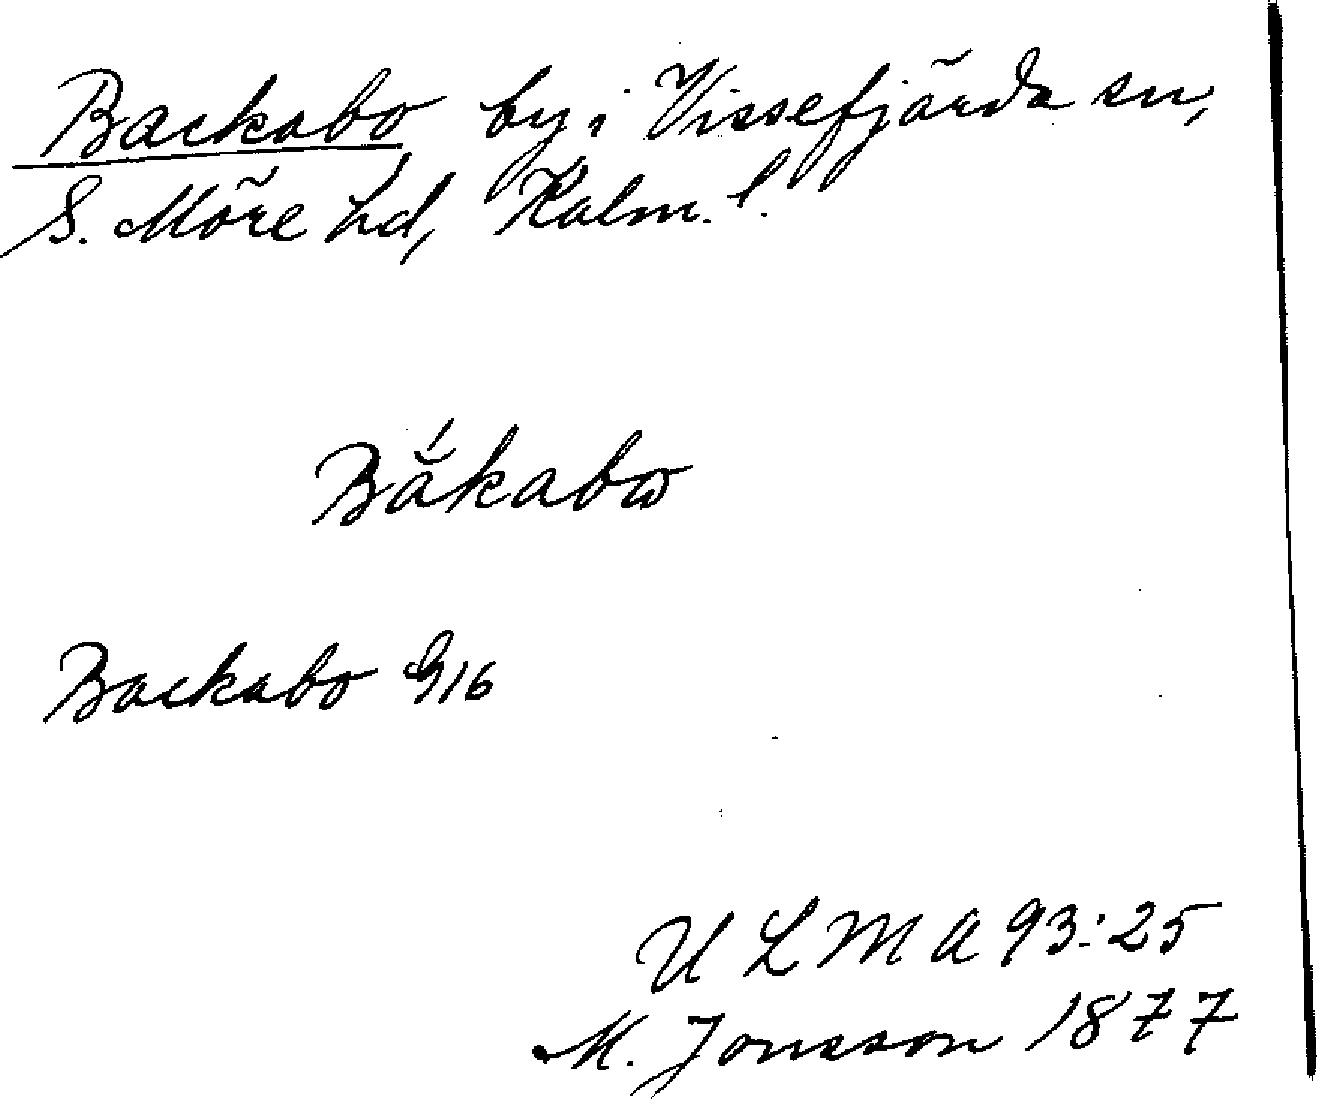 Backabo by i Vissefjärda sn,
S. Möre hd, Kalm. l.
Băkabω
Backabo G16
ULMA 93:25
M. Jonsson 1877